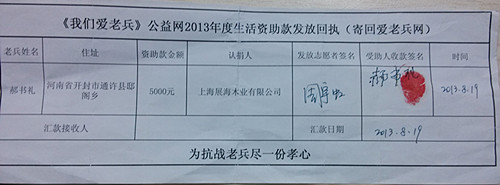 《我们爱老兵》公益网2013年度生活资助款发放回执（寄回爱老兵网）
老兵姓名 住址 资助款金额 认捐人 发放志愿者签名 受助人收款签名 时间
郝书礼 河南省开封市通许县邸阁乡 5000元 上海展海木业有限公司 2013.8.19
汇款接收人 汇款日期 2013.8.19
为抗战老兵尽一份孝心